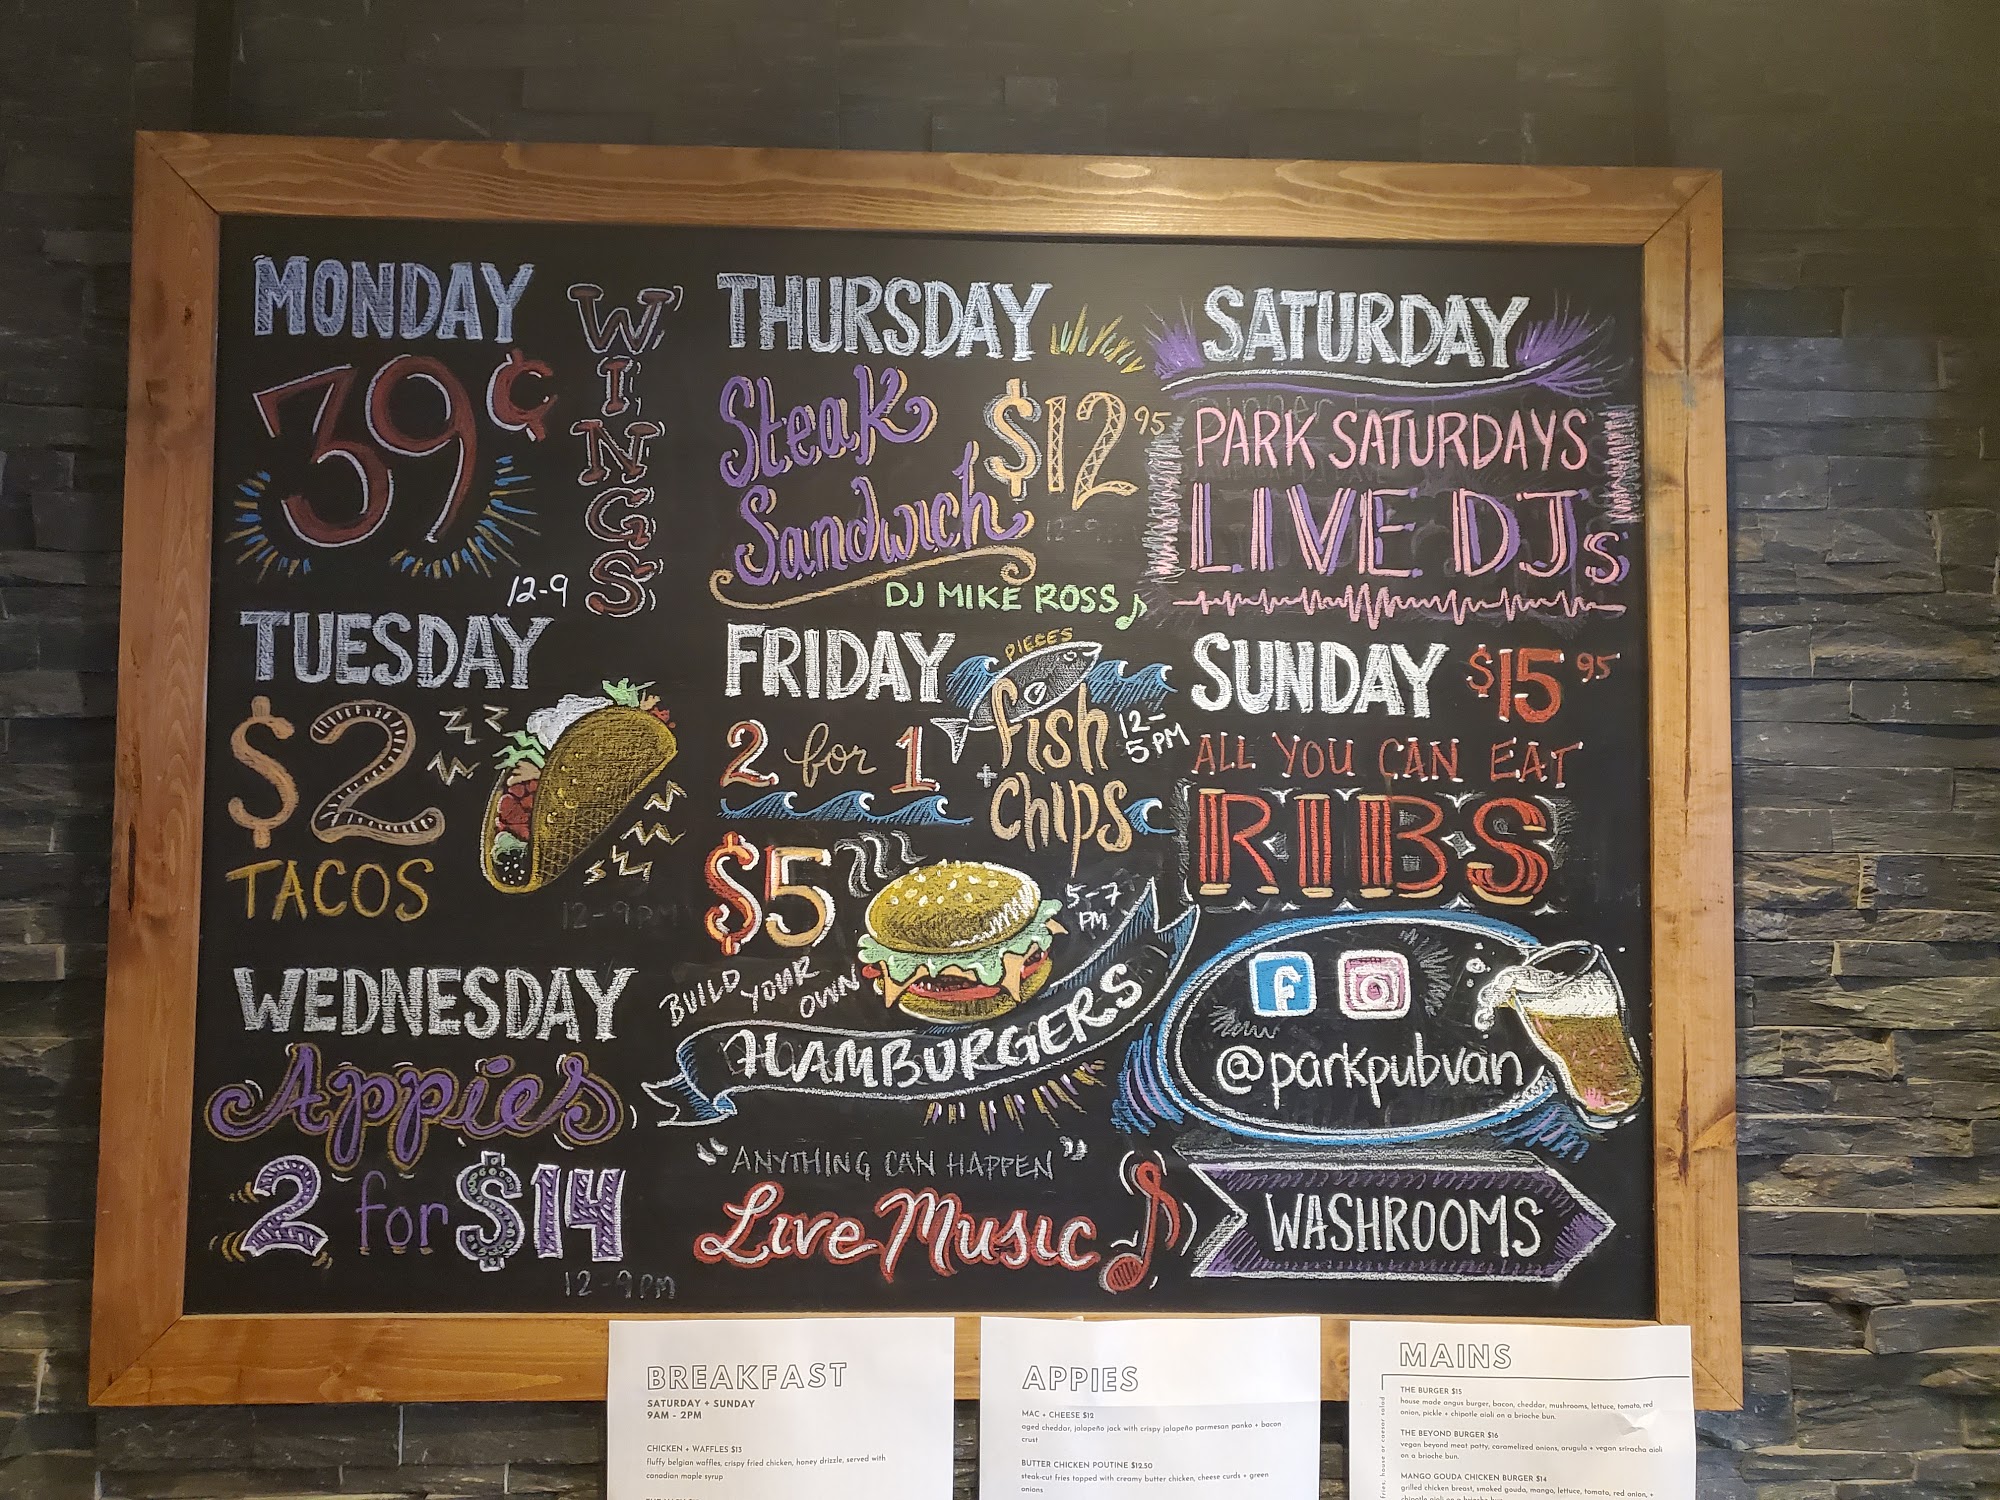 MONDAY
39¢
WINGS
12-9
TUESDAY
$2
TACOS
12-9PM
WEDNESDAY
Appies
2 for $14
12-9PM
THURSDAY
Steak
Sandwich
$12 95
12-9
DJ MIKE ROSS
FRIDAY
2 for 1
PIECES
fish
+
chips
12-
5PM
$5
5-7
PM
BUILD YOUR OWN
HAMBURGERS
"ANYTHING CAN HAPPEN"
Live Music
SATURDAY
PARK SATURDAYS
LIVE DJs
SUNDAY $15 95
ALL YOU CAN EAT
RIBS
@parkpubvan
WASHROOMS
BREAKFAST
SATURDAY + SUNDAY
9AM - 2PM
CHICKEN + WAFFLES $13
fluffy belgian waffles, crispy fried chicken, honey drizzle, served with
canadian maple syrup
APPIES
MAC + CHEESE $12
aged cheddar, jalapeño jack with crispy jalapeño parmesan panko + bacon
crust
BUTTER CHICKEN POUTINE $12.50
steak-cut fries topped with creamy butter chicken, cheese curds + green
onions
MAINS
fries, house or caesar salad
THE BURGER $15
house made angus burger, bacon, cheddar, mushrooms, lettuce, tomato, red
onion, pickle + chipotle aioli on a brioche bun.
THE BEYOND BURGER $16
vegan beyond meat patty, caramelized onions, arugula + vegan sriracha aioli
on a brioche bun.
MANGO GOUDA CHICKEN BURGER $14
grilled chicken breast, smoked gouda, mango, lettuce, tomato, red onion, +
chipotle aioli on a brioche bun.